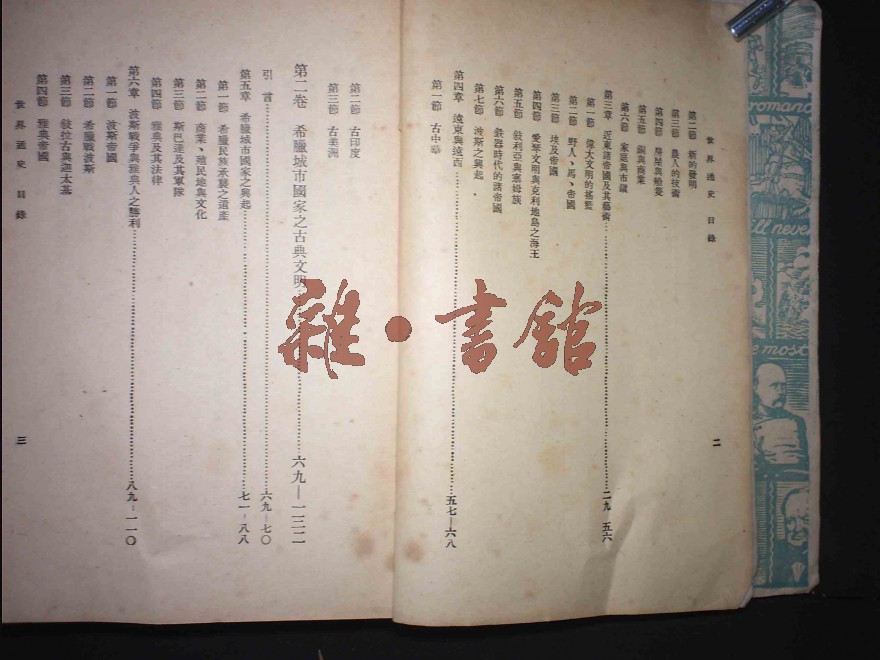 世界通史 目錄
第二節 新的發明
第三節 農人的技術
第四節 房屋與殖曼
第五節 銅與商業
第六節 家庭與市鎮
第三章 近東諸帝國及其藝術………二九 五六
第一節 偉大文明的搖籃
第二節 野人、馬、帝國
第三節 埃及帝國
第四節 愛琴文明與克利地島之海王
第五節 敍利亞與塞姆族
第六節 鉄器時代的諸帝國
第七節 波斯之興起
第四章 遠東與遠西………五七—六八
第一節 古中華
二
第二節 古印度
第三節 古美洲
第二卷 希臘城市國家之古典文明………六九—一三二
引言………六九—七〇
第五章 希臘城市國家之興起………七一-八八
第一節 希臘民族承襲之遺產
第二節 商業、殖民地與文化
第三節 斯巴達及其軍隊
第四節 雅典及其法律
第六章 波斯戰爭與雅典人之勝利………八九-一一〇
第一節 波斯帝國
第二節 希臘戰波斯
第三節 敍拉古與迦太基
第四節 雅典帝國
世界通史 目錄
三
雜·書館
romanc
ill never
e most